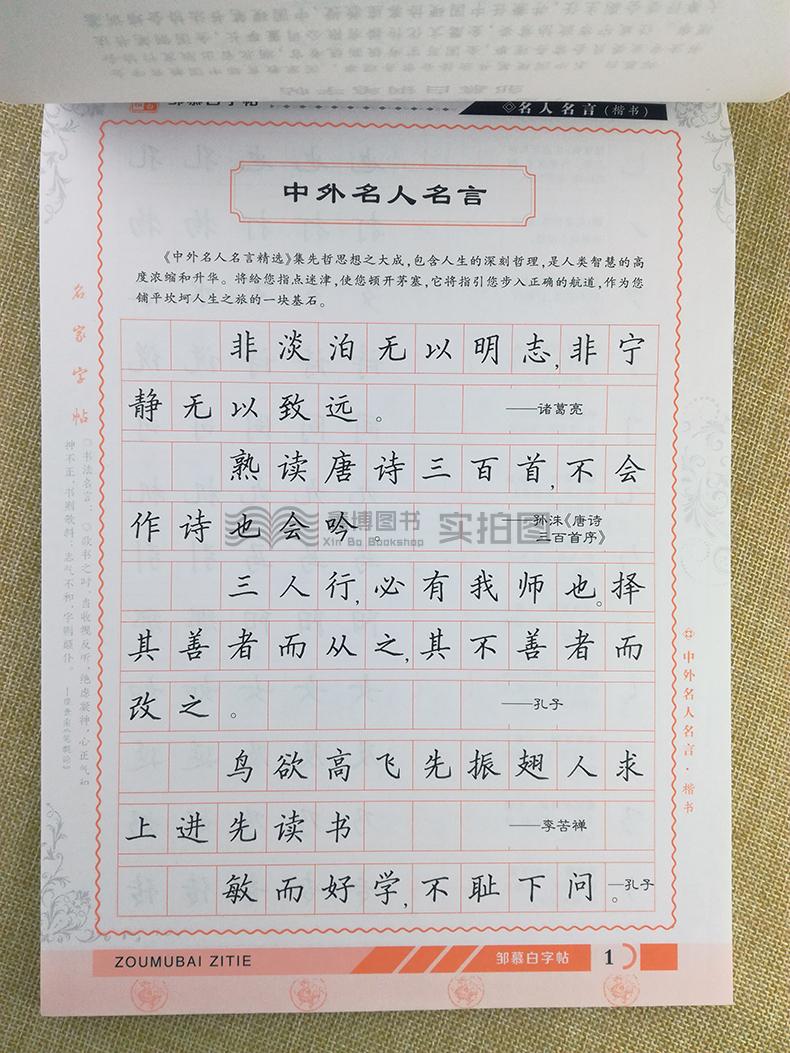 邹慕白字帖
名人名言(楷书)
中外名人名言
《中外名人名言精选》集先哲思想之大成,包含人生的深刻哲理,是人类智慧的高
度浓缩和升华。将给您指点迷津,使您顿开茅塞,它将指引您步入正确的航道,作为您
铺平坎坷人生之旅的一块基石。
非淡泊无以明志,非宁
静无以致远。 ——诸葛亮
熟读唐诗三百首,不会
作诗也会吟。 ——孙洙《唐诗
三百首序》
三人行,必有我师也。择
其善者而从之,其不善者而
改之。 ——孔子
鸟欲高飞先振翅人求
上进先读书 ——李苦禅
敏而好学,不耻下问。 —孔子
名家字帖
书法名言:欲书之时,当收视反听,绝虑凝神,心正气和
神不正,书则敧斜;志气不和,字则颠仆。
中外名人名言·楷书
博图书
Xin Bo Bookshop
实拍图
ZOUMUBAI ZITIE
邹慕白字帖
1